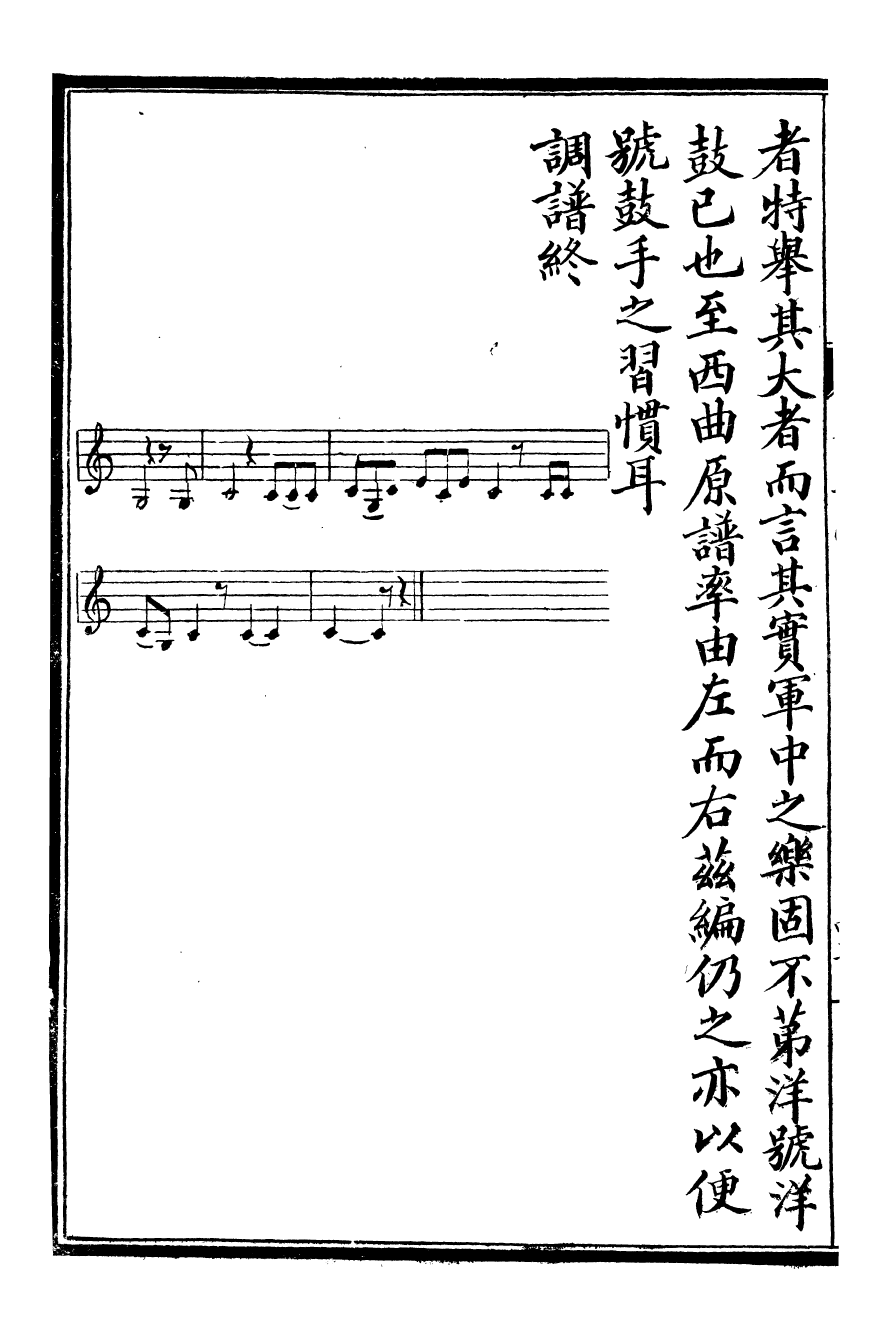 者特舉其大者而言其實軍中之樂固不苐洋號洋
鼓已也至西曲原譜率由左而右茲編仍之亦以便
號鼓手之習慣耳
調譜終